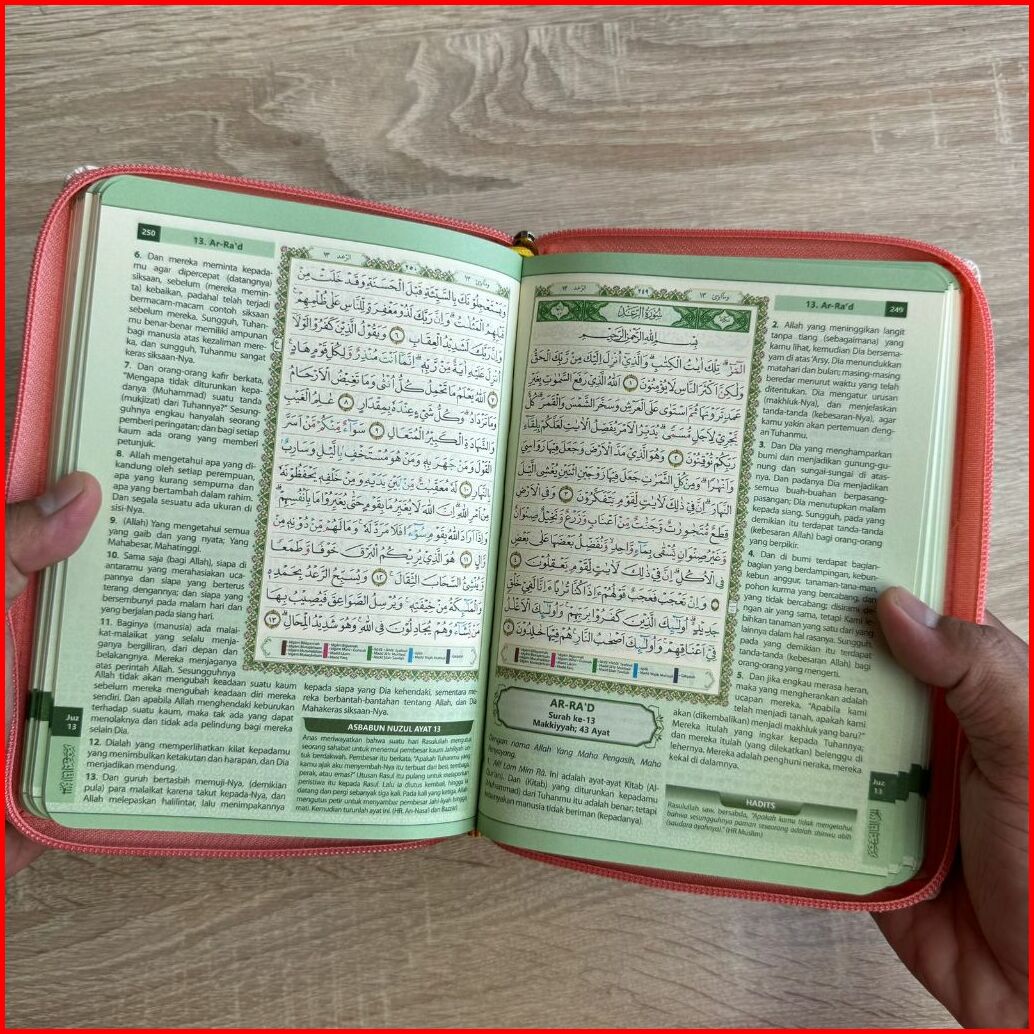 وما أبرئ ١٣
٢٤٩
الرعد ١٣
سُوْرَةُ الرَّعْدِ
بِسْمِ اللّٰهِ الرَّحْمٰنِ الرَّحِيْمِ
الۤمّۤرٰۗ تِلْكَ اٰيٰتُ الْكِتٰبِۗ وَالَّذِيْٓ اُنْزِلَ اِلَيْكَ مِنْ رَّبِّكَ الْحَقُّ
وَلٰكِنَّ اَكْثَرَ النَّاسِ لَا يُؤْمِنُوْنَ ١ اَللّٰهُ الَّذِيْ رَفَعَ السَّمٰوٰتِ بِغَيْرِ
عَمَدٍ تَرَوْنَهَا ثُمَّ اسْتَوٰى عَلَى الْعَرْشِ وَسَخَّرَ الشَّمْسَ وَالْقَمَرَۗ كُلٌّ
يَّجْرِيْ لِاَجَلٍ مُّسَمًّىۗ يُدَبِّرُ الْاَمْرَ يُفَصِّلُ الْاٰيٰتِ لَعَلَّكُمْ بِلِقَاۤءِ
رَبِّكُمْ تُوْقِنُوْنَ ٢ وَهُوَ الَّذِيْ مَدَّ الْاَرْضَ وَجَعَلَ فِيْهَا رَوَاسِيَ
وَاَنْهٰرًاۗ وَمِنْ كُلِّ الثَّمَرٰتِ جَعَلَ فِيْهَا زَوْجَيْنِ اثْنَيْنِ يُغْشِى الَّيْلَ
النَّهَارَۗ اِنَّ فِيْ ذٰلِكَ لَاٰيٰتٍ لِّقَوْمٍ يَّتَفَكَّرُوْنَ ٣ وَفِى الْاَرْضِ
قِطَعٌ مُّتَجٰوِرٰتٌ وَّجَنّٰتٌ مِّنْ اَعْنَابٍ وَّزَرْعٌ وَّنَخِيْلٌ صِنْوَانٌ
وَّغَيْرُ صِنْوَانٍ يُّسْقٰى بِمَاۤءٍ وَّاحِدٍۙ وَّنُفَضِّلُ بَعْضَهَا عَلٰى بَعْضٍ
فِى الْاُكُلِۗ اِنَّ فِيْ ذٰلِكَ لَاٰيٰتٍ لِّقَوْمٍ يَّعْقِلُوْنَ ٤
وَاِنْ تَعْجَبْ فَعَجَبٌ قَوْلُهُمْ ءَاِذَا كُنَّا تُرٰبًا ءَاِنَّا لَفِيْ خَلْقٍ
جَدِيْدٍ ۗ اُولٰۤىِٕكَ الَّذِيْنَ كَفَرُوْا بِرَبِّهِمْۚ وَاُولٰۤىِٕكَ الْاَغْلٰلُ
فِيْٓ اَعْنَاقِهِمْۚ وَاُولٰۤىِٕكَ اَصْحٰبُ النَّارِۚ هُمْ فِيْهَا خٰلِدُوْنَ ٥
AR-RA'D
Surah ke-13
Makkiyyah; 43 Ayat
Dengan nama Allah Yang Maha Pengasih, Maha
Penyayang.
1. Alif Lām Mīm Rā. Ini adalah ayat-ayat Kitab (Al-
Qur'an). Dan (Kitab) yang diturunkan kepadamu
(Muhammad) dari Tuhanmu itu adalah benar; tetapi
kebanyakan manusia tidak beriman (kepadanya).
13. Ar-Ra'd
249
2. Allah yang meninggikan langit
tanpa tiang (sebagaimana) yang
kamu lihat, kemudian Dia bersema-
yam di atas 'Arsy. Dia menundukkan
matahari dan bulan; masing-masing
beredar menurut waktu yang telah
ditentukan. Dia mengatur urusan
(makhluk-Nya), dan menjelaskan
tanda-tanda (kebesaran-Nya), agar
kamu yakin akan pertemuan deng-
an Tuhanmu.
3. Dan Dia yang menghamparkan
bumi dan menjadikan gunung-gu-
nung dan sungai-sungai di atas-
nya. Dan padanya Dia menjadikan
semua buah-buahan berpasang-
pasangan; Dia menutupkan malam
kepada siang. Sungguh, pada yang
demikian itu terdapat tanda-tanda
(kebesaran Allah) bagi orang-orang
yang berpikir.
4. Dan di bumi terdapat bagian-
bagian yang berdampingan, kebun-
kebun anggur, tanaman-tanaman,
pohon kurma yang bercabang, dan
yang tidak bercabang; disirami de-
ngan air yang sama, tetapi Kami le-
bihkan tanaman yang satu dari yang
lainnya dalam hal rasanya. Sungguh,
pada yang demikian itu terdapat
tanda-tanda (kebesaran Allah) bagi
orang-orang yang mengerti.
5. Dan jika engkau merasa heran,
maka yang mengherankan adalah
ucapan mereka, "Apabila kami
telah menjadi tanah, apakah kami
akan (dikembalikan) menjadi makhluk yang baru?"
Mereka itulah yang ingkar kepada Tuhannya;
dan mereka itulah (yang dilekatkan) belenggu di
lehernya. Mereka adalah penghuni neraka, mereka
kekal di dalamnya.
HADITS
Rasulullah saw. bersabda, "Apakah kamu tidak mengetahui
bahwa sesungguhnya paman seseorang adalah shinwu abih
(saudara ayahnya)." (HR Muslim)
Juz
13
250
13. Ar-Ra'd
6. Dan mereka meminta kepada-
mu agar dipercepat (datangnya)
siksaan, sebelum (mereka memin-
ta) kebaikan, padahal telah terjadi
bermacam-macam contoh siksaan
sebelum mereka. Sungguh, Tuhan-
mu benar-benar memiliki ampunan
bagi manusia atas kezaliman mere-
ka, dan sungguh, Tuhanmu sangat
keras siksaan-Nya.
7. Dan orang-orang kafir berkata,
"Mengapa tidak diturunkan kepa-
danya (Muhammad) suatu tanda
(mukjizat) dari Tuhannya?" Sesung-
guhnya engkau hanyalah seorang
pemberi peringatan; dan bagi setiap
kaum ada orang yang memberi
petunjuk.
8. Allah mengetahui apa yang di-
kandung oleh setiap perempuan,
apa yang kurang sempurna dan
apa yang bertambah dalam rahim.
Dan segala sesuatu ada ukuran di
sisi-Nya.
9. (Allah) Yang mengetahui semua
yang gaib dan yang nyata; Yang
Mahabesar, Mahatinggi.
10. Sama saja (bagi Allah), siapa di
antaramu yang merahasiakan uca-
pannya dan siapa yang berterus
terang dengannya; dan siapa yang
bersembunyi pada malam hari dan
yang berjalan pada siang hari.
11. Baginya (manusia) ada malai-
kat-malaikat yang selalu menja-
ganya bergiliran, dari depan dan
belakangnya. Mereka menjaganya
atas perintah Allah. Sesungguhnya
Allah tidak akan mengubah keadaan suatu kaum
sebelum mereka mengubah keadaan diri mereka
sendiri. Dan apabila Allah menghendaki keburukan
terhadap suatu kaum, maka tak ada yang dapat
menolaknya dan tidak ada pelindung bagi mereka
selain Dia.
12. Dialah yang memperlihatkan kilat kepadamu
yang menimbulkan ketakutan dan harapan, dan Dia
menjadikan mendung.
13. Dan guruh bertasbih memuji-Nya, (demikian
pula) para malaikat karena takut kepada-Nya, dan
Allah melepaskan halilintar, lalu menimpakannya
الرعد ١٣
٢٥٠
وما أبرئ ١٣
وَيَسْتَعْجِلُوْنَكَ بِالسَّيِّئَةِ قَبْلَ الْحَسَنَةِ وَقَدْ خَلَتْ مِنْ
قَبْلِهِمُ الْمَثُلٰتُۗ وَاِنَّ رَبَّكَ لَذُوْ مَغْفِرَةٍ لِّلنَّاسِ عَلٰى ظُلْمِهِمْۚ
وَاِنَّ رَبَّكَ لَشَدِيْدُ الْعِقَابِ ٦ وَيَقُوْلُ الَّذِيْنَ كَفَرُوْا لَوْلَآ
اُنْزِلَ عَلَيْهِ اٰيَةٌ مِّنْ رَّبِّهٖۗ اِنَّمَآ اَنْتَ مُنْذِرٌ وَّلِكُلِّ قَوْمٍ هَادٍ
٧ اَللّٰهُ يَعْلَمُ مَا تَحْمِلُ كُلُّ اُنْثٰى وَمَا تَغِيْضُ الْاَرْحَامُ
وَمَا تَزْدَادُۗ وَكُلُّ شَيْءٍ عِنْدَهٗ بِمِقْدَارٍ ٨ عٰلِمُ الْغَيْبِ
وَالشَّهَادَةِ الْكَبِيْرُ الْمُتَعَالِ ٩ سَوَاۤءٌ مِّنْكُمْ مَّنْ اَسَرَّ
الْقَوْلَ وَمَنْ جَهَرَ بِهٖ وَمَنْ هُوَ مُسْتَخْفٍۢ بِالَّيْلِ وَسَارِبٌۢ
بِالنَّهَارِ ١٠ لَهٗ مُعَقِّبٰتٌ مِّنْۢ بَيْنِ يَدَيْهِ وَمِنْ خَلْفِهٖ يَحْفَظُوْنَهٗ
مِنْ اَمْرِ اللّٰهِ ۗاِنَّ اللّٰهَ لَا يُغَيِّرُ مَا بِقَوْمٍ حَتّٰى يُغَيِّرُوْا مَا بِاَنْفُسِهِمْۗ
وَاِذَآ اَرَادَ اللّٰهُ بِقَوْمٍ سُوْۤءًا فَلَا مَرَدَّ لَهٗ ۚوَمَا لَهُمْ مِّنْ دُوْنِهٖ مِنْ
وَّالٍ ١١ هُوَ الَّذِيْ يُرِيْكُمُ الْبَرْقَ خَوْفًا وَّطَمَعًا
وَّيُنْشِئُ السَّحَابَ الثِّقَالَۚ ١٢ وَيُسَبِّحُ الرَّعْدُ بِحَمْدِهٖ
وَالْمَلٰۤىِٕكَةُ مِنْ خِيْفَتِهٖۚ وَيُرْسِلُ الصَّوَاعِقَ فَيُصِيْبُ بِهَا
مَنْ يَّشَاۤءُ وَهُمْ يُجَادِلُوْنَ فِى اللّٰهِ ۚوَهُوَ شَدِيْدُ الْمِحَالِۗ ١٣
kepada siapa yang Dia kehendaki, sementara me-
reka berbantah-bantahan tentang Allah, dan Dia
Mahakeras siksaan-Nya.
ASBABUN NUZUL AYAT 13
Anas meriwayatkan bahwa suatu hari Rasulullah mengutus
seorang sahabat untuk menemui pembesar kaum Jahiliyah un-
tuk berdakwah. Pembesar itu berkata, "Apakah Tuhanmu yang
kamu ajak aku menyembah-Nya itu terbuat dari besi, tembaga,
perak, atau emas?" Utusan Rasul itu pulang untuk melaporkan
peristiwa itu kepada Rasul. Lalu ia diutus kembali, hingga ia
datang dan pergi sebanyak tiga kali. Pada kali yang ketiga, Allah
mengutus petir untuk menyambar pembesar Jahiliyah hingga
mati. Kemudian turunlah ayat ini. (HR. An-Nasa'i dan Bazzar)
Juz
13